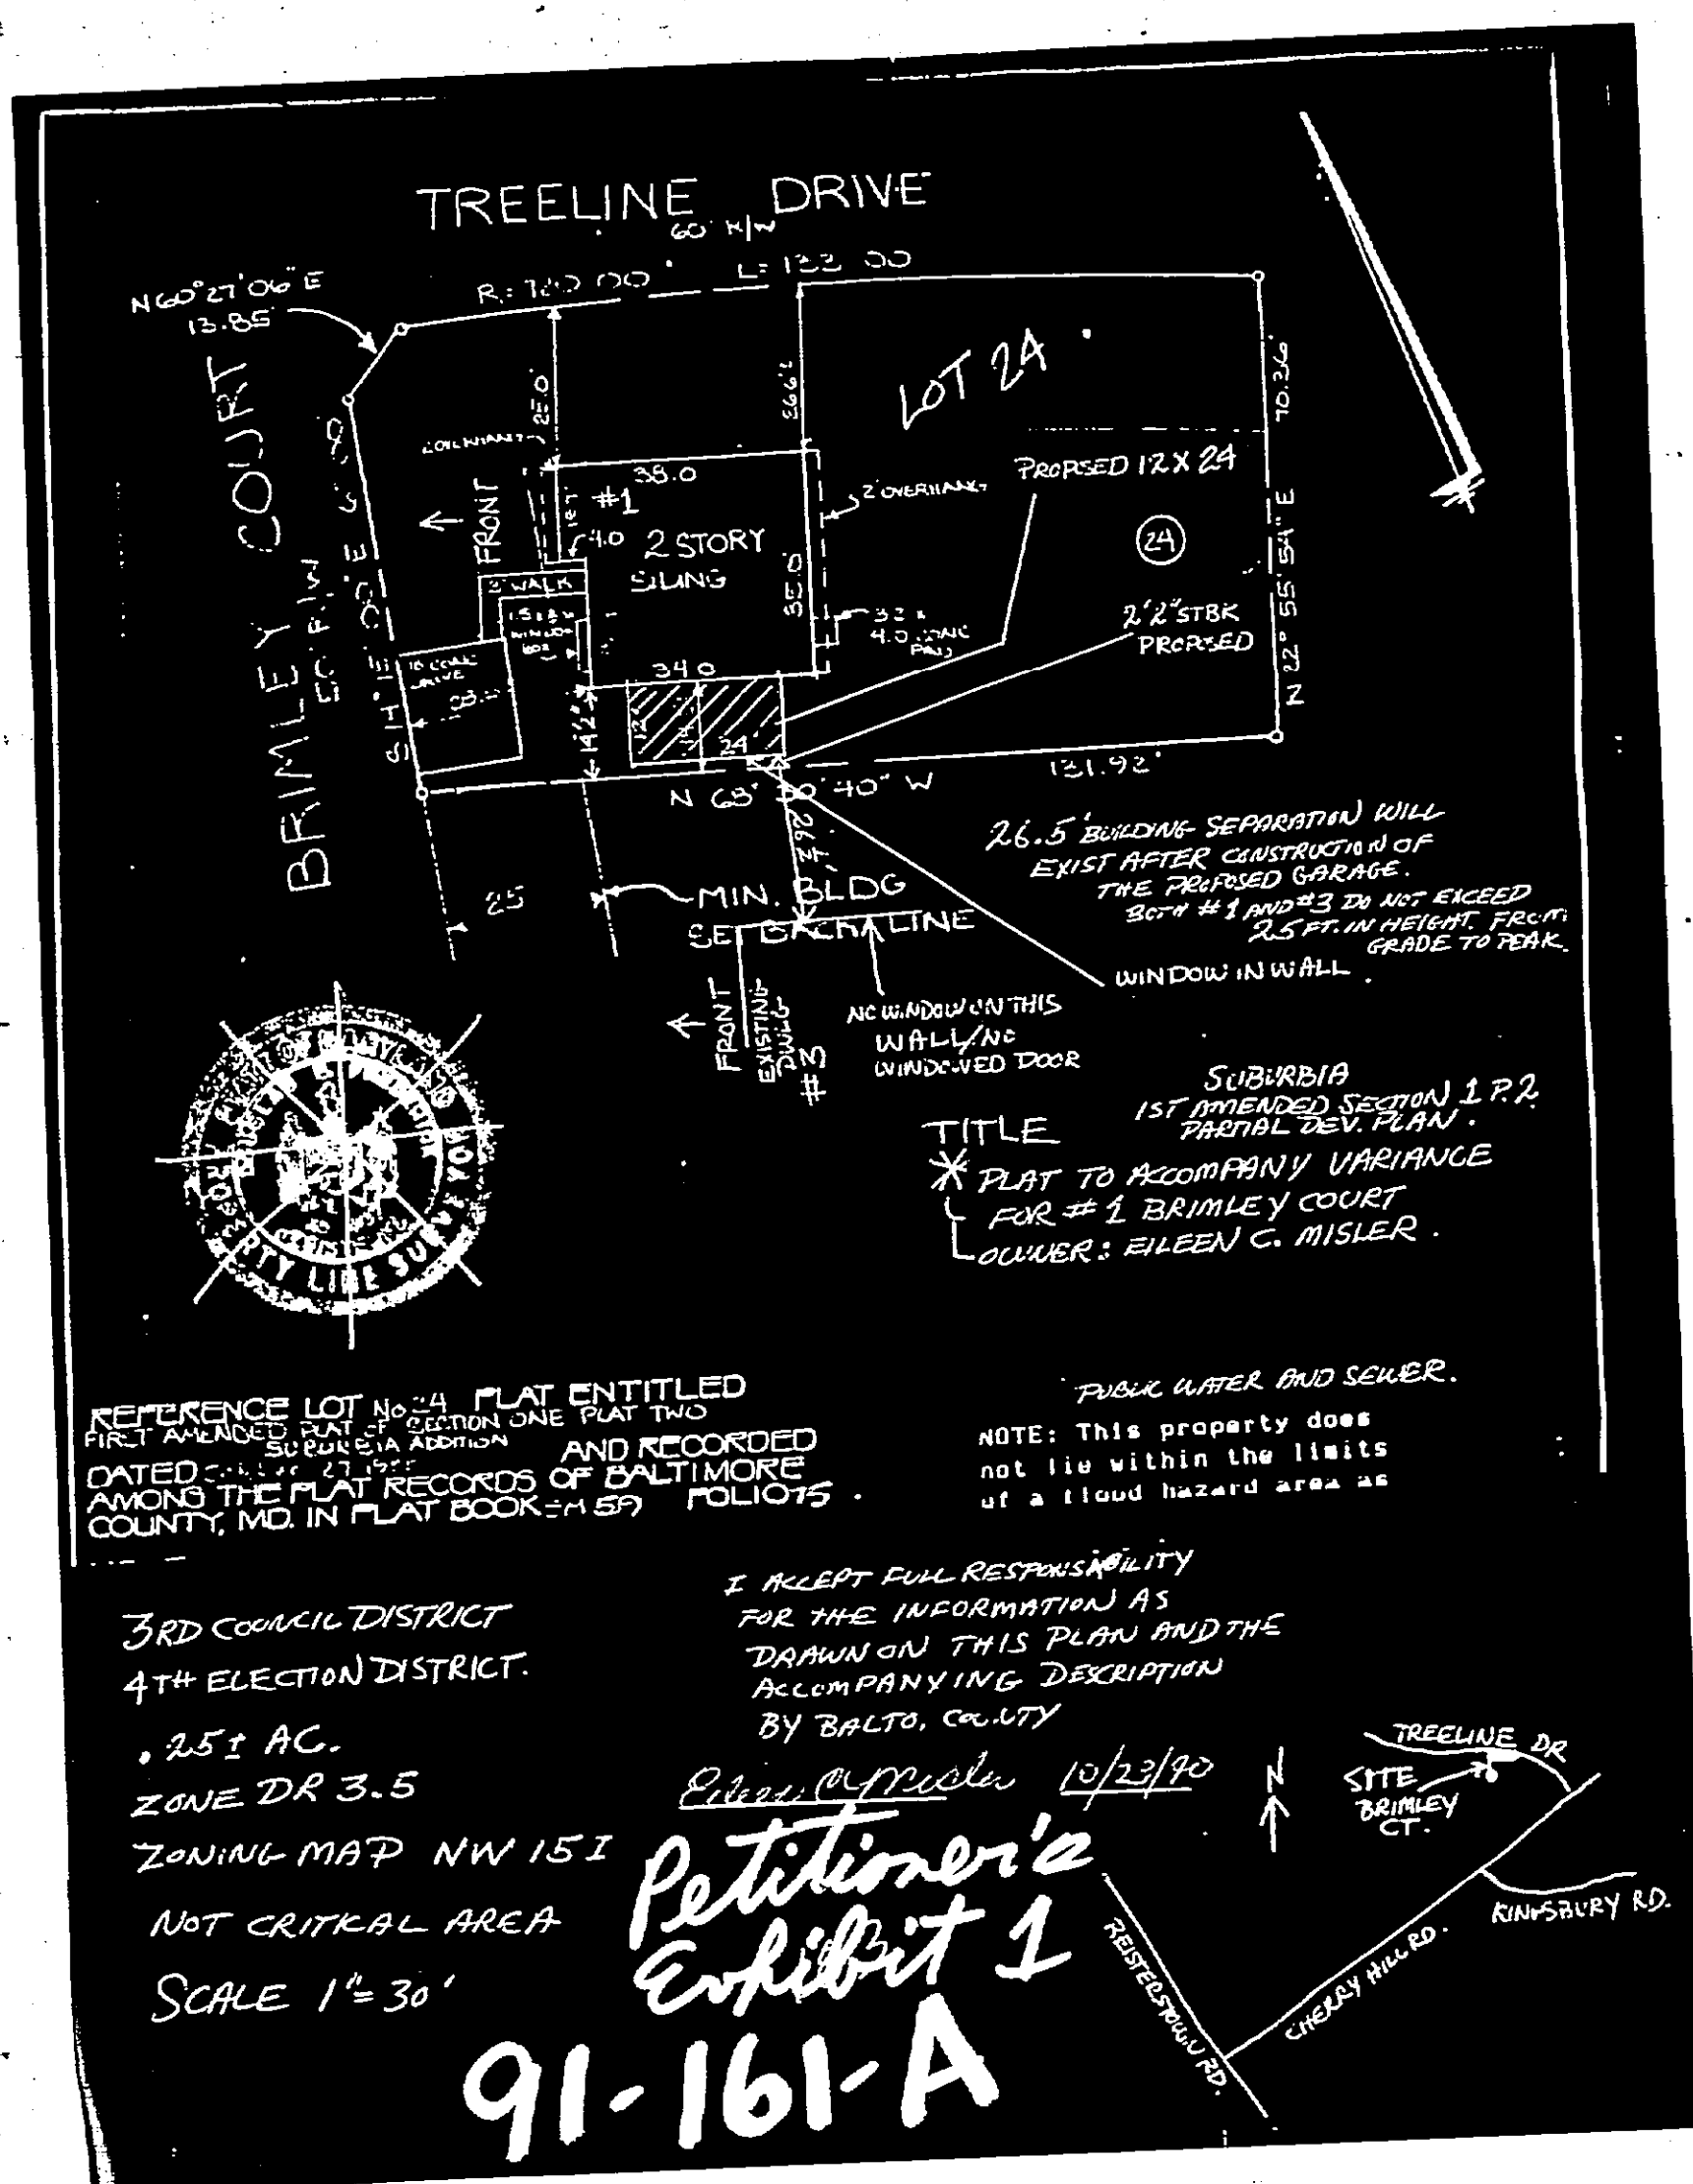 TREELINE DRIVE
60' R/W
N60°27'06"E
13.85'
L= 133.00
BRIMLEY COURT
LOT 24
70.36'
25.0'
38.0
PROPSED 12 X 24
#1
2' OVERHANG
FRONT
4.0
2 STORY
SIDING
24
WALK
2'2" STBK
PROPSED
34.0
14'2"
12'
24'
131.92'
40" W
N 22° 55' 54" E
26.5' BUILDING SEPARATION WILL
EXIST AFTER CONSTRUCTION OF
THE PROPOSED GARAGE.
BOTH #1 AND #3 DO NOT EXCEED
25 FT. IN HEIGHT. FROM
GRADE TO PEAK.
25
MIN. BLDG
SET BACK LINE
WINDOW IN WALL.
FRONT
EXISTING
DWLG
#3
NO WINDOW ON THIS
WALL/NO
WINDOWED DOOR
SUBURBIA
1ST AMENDED SECTION 1 P.2
PARTIAL DEV. PLAN.
TITLE
PLAT TO ACCOMPANY VARIANCE
FOR #1 BRIMLEY COURT
OWNER: EILEEN C. MISLER.
REFERENCE LOT No 24 PLAT ENTITLED
FIRST AMENDED PLAT OF SECTION ONE PLAT TWO
SUBURBIA ADDITION AND RECORDED
DATED
AMONG THE PLAT RECORDS OF BALTIMORE
COUNTY, MD. IN PLAT BOOK 59 FOLIO 75.
PUBLIC WATER AND SEWER.
NOTE: This property does
not lie within the limits
of a flood hazard area as
3RD COUNCIL DISTRICT
4TH ELECTION DISTRICT.
.25± AC.
ZONE DR 3.5
ZONING MAP NW 15 I
NOT CRITICAL AREA
SCALE 1"=30'
I ACCEPT FULL RESPONSIBILITY
FOR THE INFORMATION AS
DRAWN ON THIS PLAN AND THE
ACCOMPANYING DESCRIPTION
BY BALTO. COUNTY
Eileen C Misler 10/23/90
Petitioner's
Exhibit 1
91-161-A
N
TREELINE DR
SITE
BRIMLEY
CT.
KINGSBURY RD.
CHERRY HILL RD.
REISTERSTOWN RD.